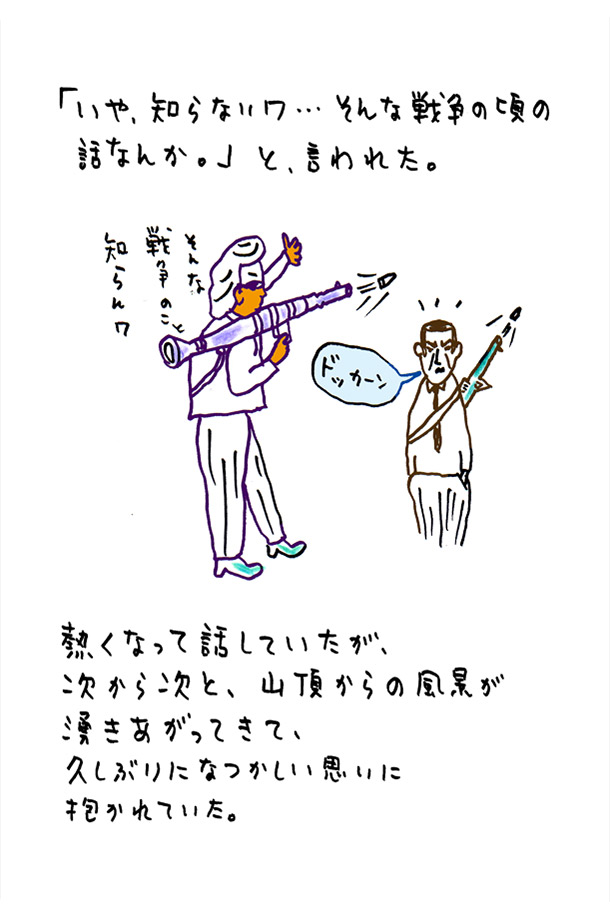 「いや、知らないワ…そんな戦争の頃の
話なんか。」と、言われた。
そんな
戦争のこと
知らんワ
ドッカーン
熱くなって話していたが、
次から次と、山頂からの風景が
湧きあがってきて、
久しぶりになつかしい思いに
抱かれていた。